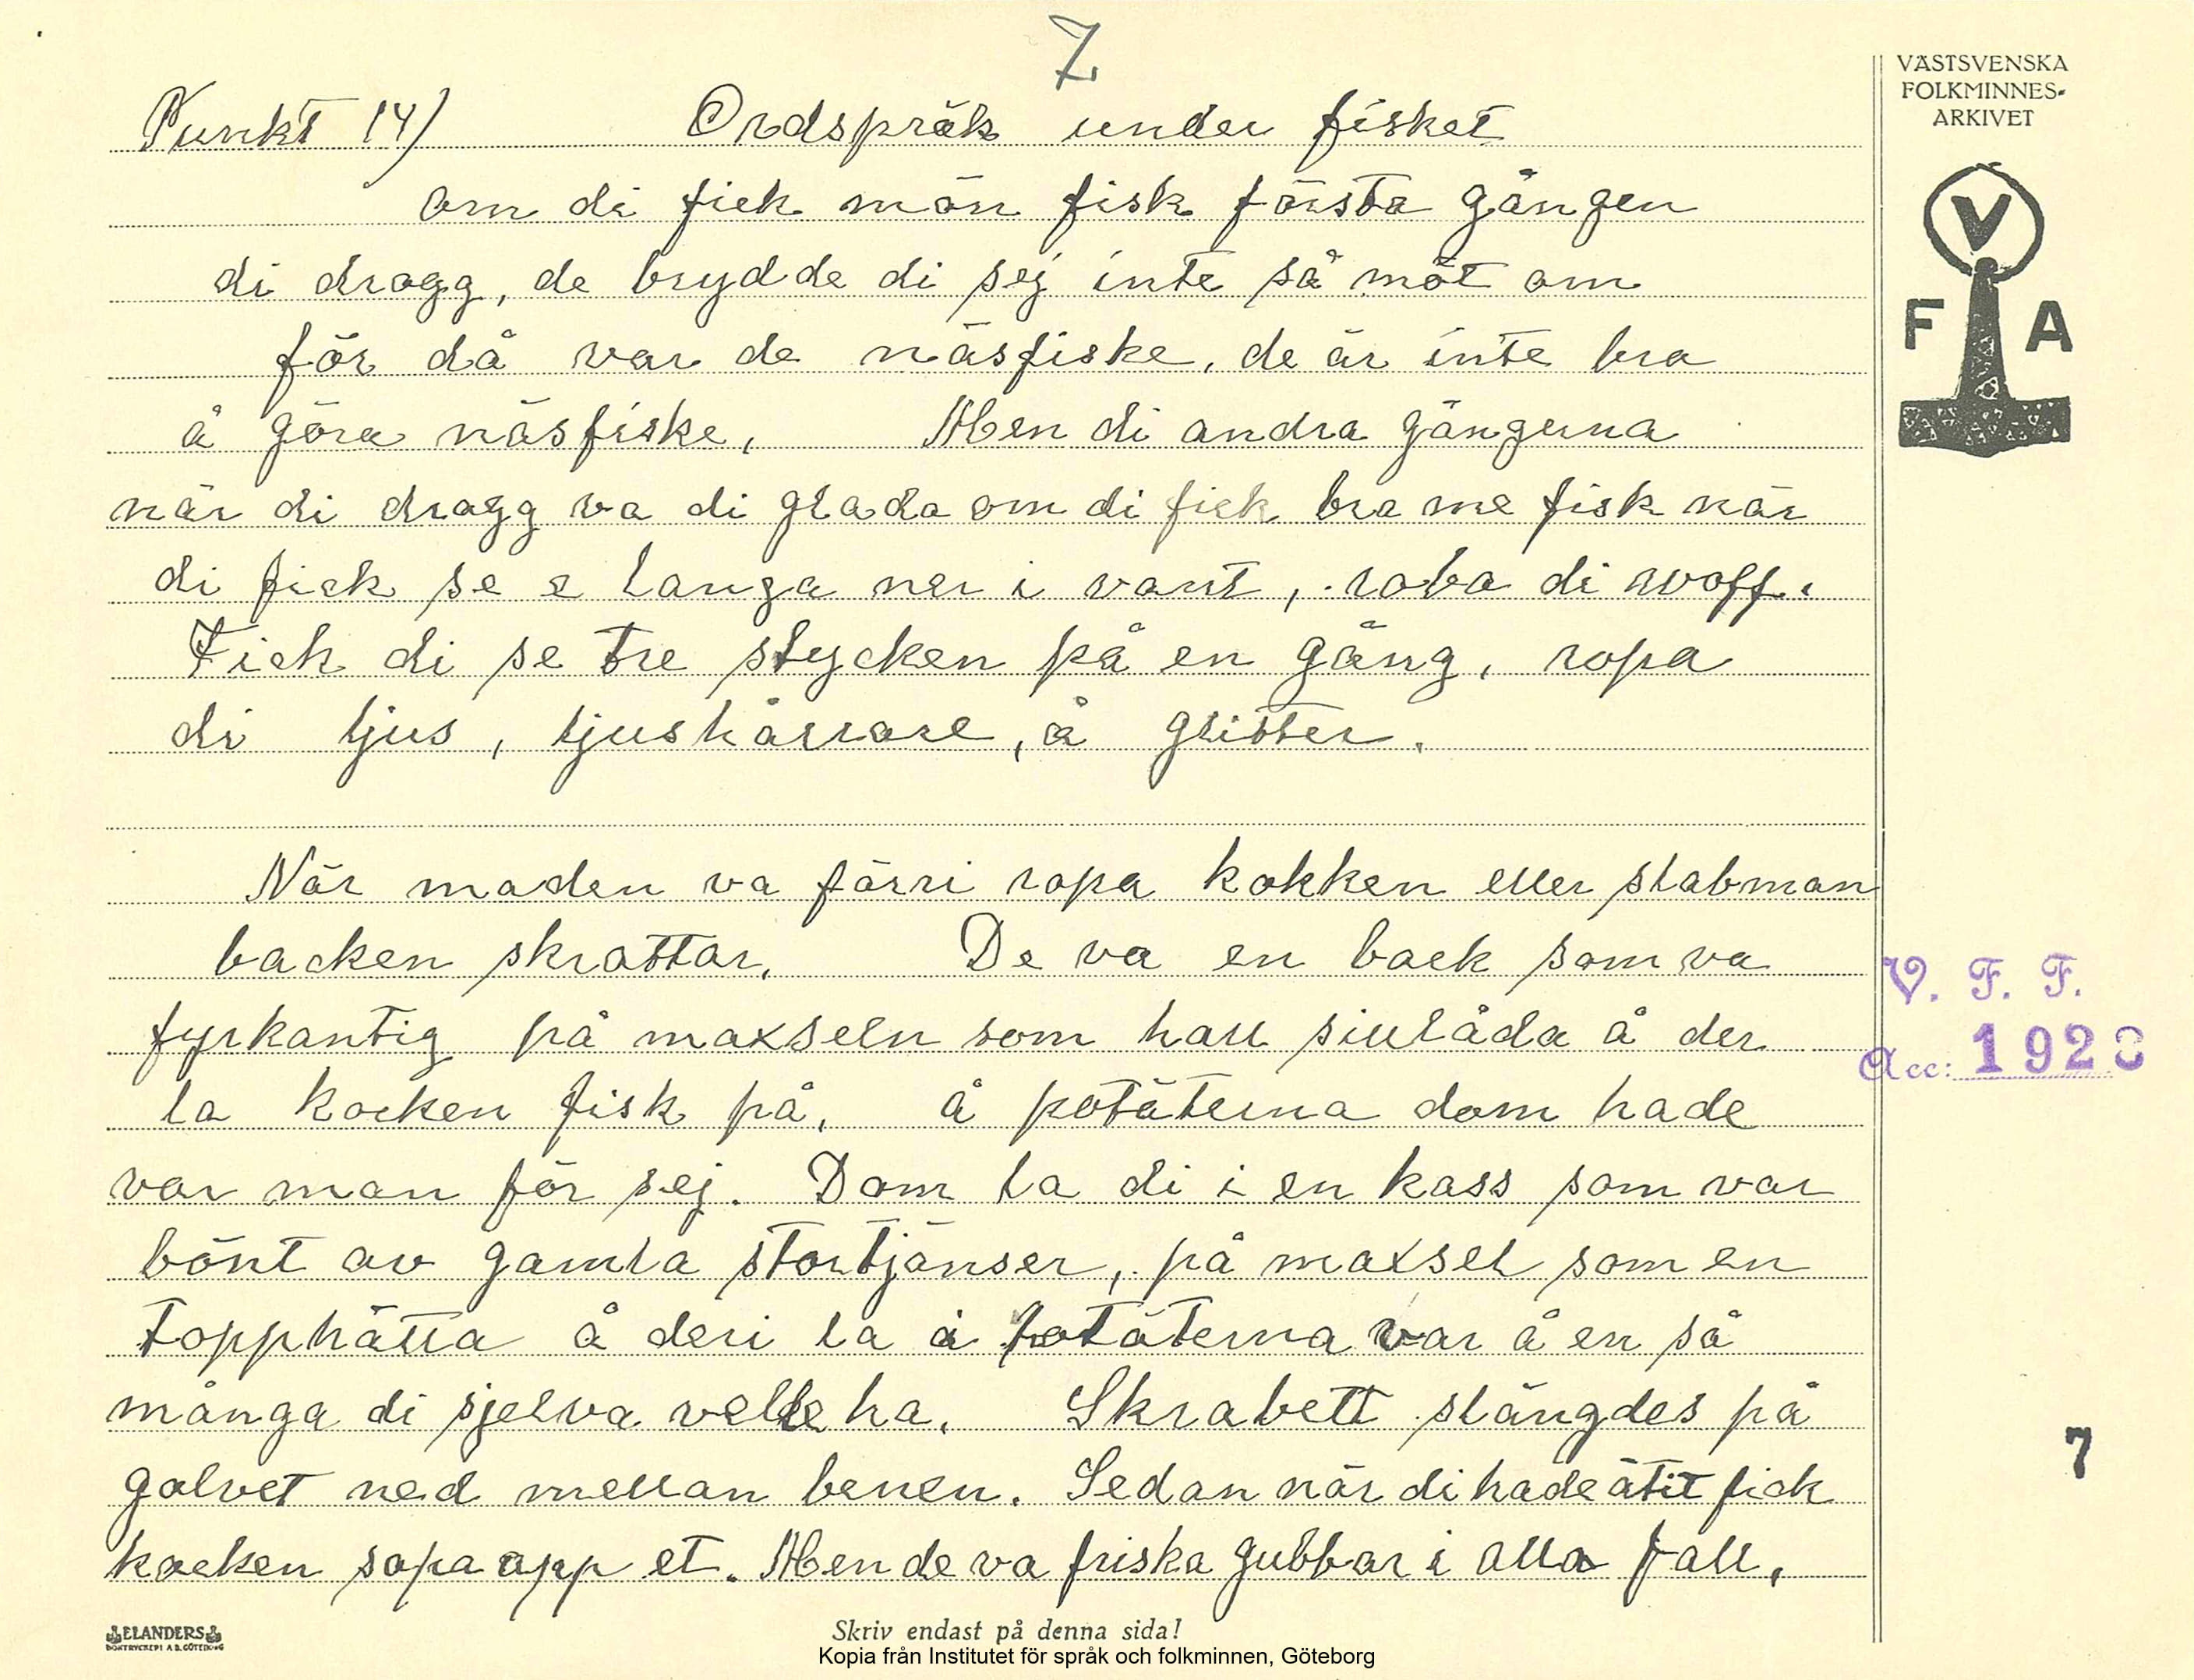 7
VÄSTSVENSKA
FOLKMINNES-
ARKIVET
V
F A
Punkt 14) Ordspråk under fisket
om di fick mön fisk första gången
di dragg, de brydde di sej inte så möt om
för då var de näsfiske, de är inte bra
å göra näsfiske, Men di andra gångerna
när di dragg va di glada om di fick bra me fisk när
di fick se e langa ner i vant, roba di woff.
Fick di se tre stycken på en gång, ropa
di ljus, ljushårrare, å glitter.
När maden va färri ropa kokken eller slabman
backen skrattar. De va en back som va
fyrkantig på maxseln som hall sillåda å der
la kocken fisk på, å potäterna dom hade
var man för sej. Dom la di i en kass som var
bönt av gamla stortjänser, på maxsel som en
topphätta å deri la å potäterna var å en så
många di sjelva velle ha. Skrabett slängdes på
galvet ned mellan benen. Sedan när di hade ätit fick
kocken sopa opp et. Men de va friska gubbar i alla fall,
V. F. F.
Acc: 1928
7
ELANDERS
BOKTRYCKERI A.B. GÖTEBORG
Skriv endast på denna sida!
Kopia från Institutet för språk och folkminnen, Göteborg